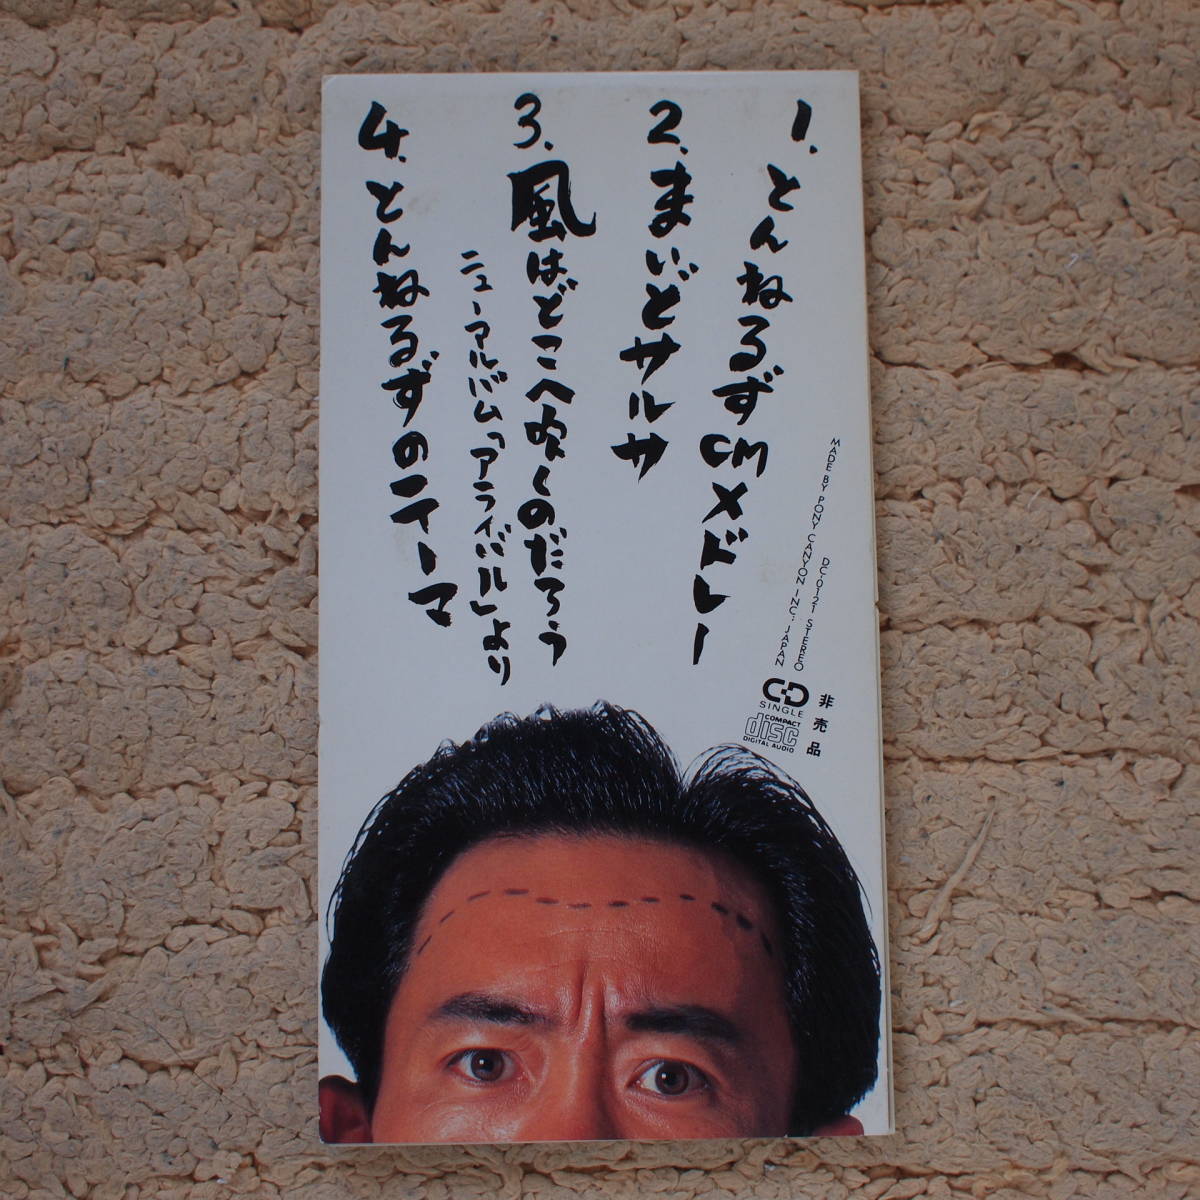 1.とんねるずCMメドレー
2.まいどサルサ
3.風はどこへ吹くのだろう
ニューアルバム「アライバル」より
4.とんねるずのテーマ
MADE BY PONY CANYON INC; JAPAN
DC-0121 STEREO
CD
SINGLE
COMPACT
disc
DIGITAL AUDIO
非売品